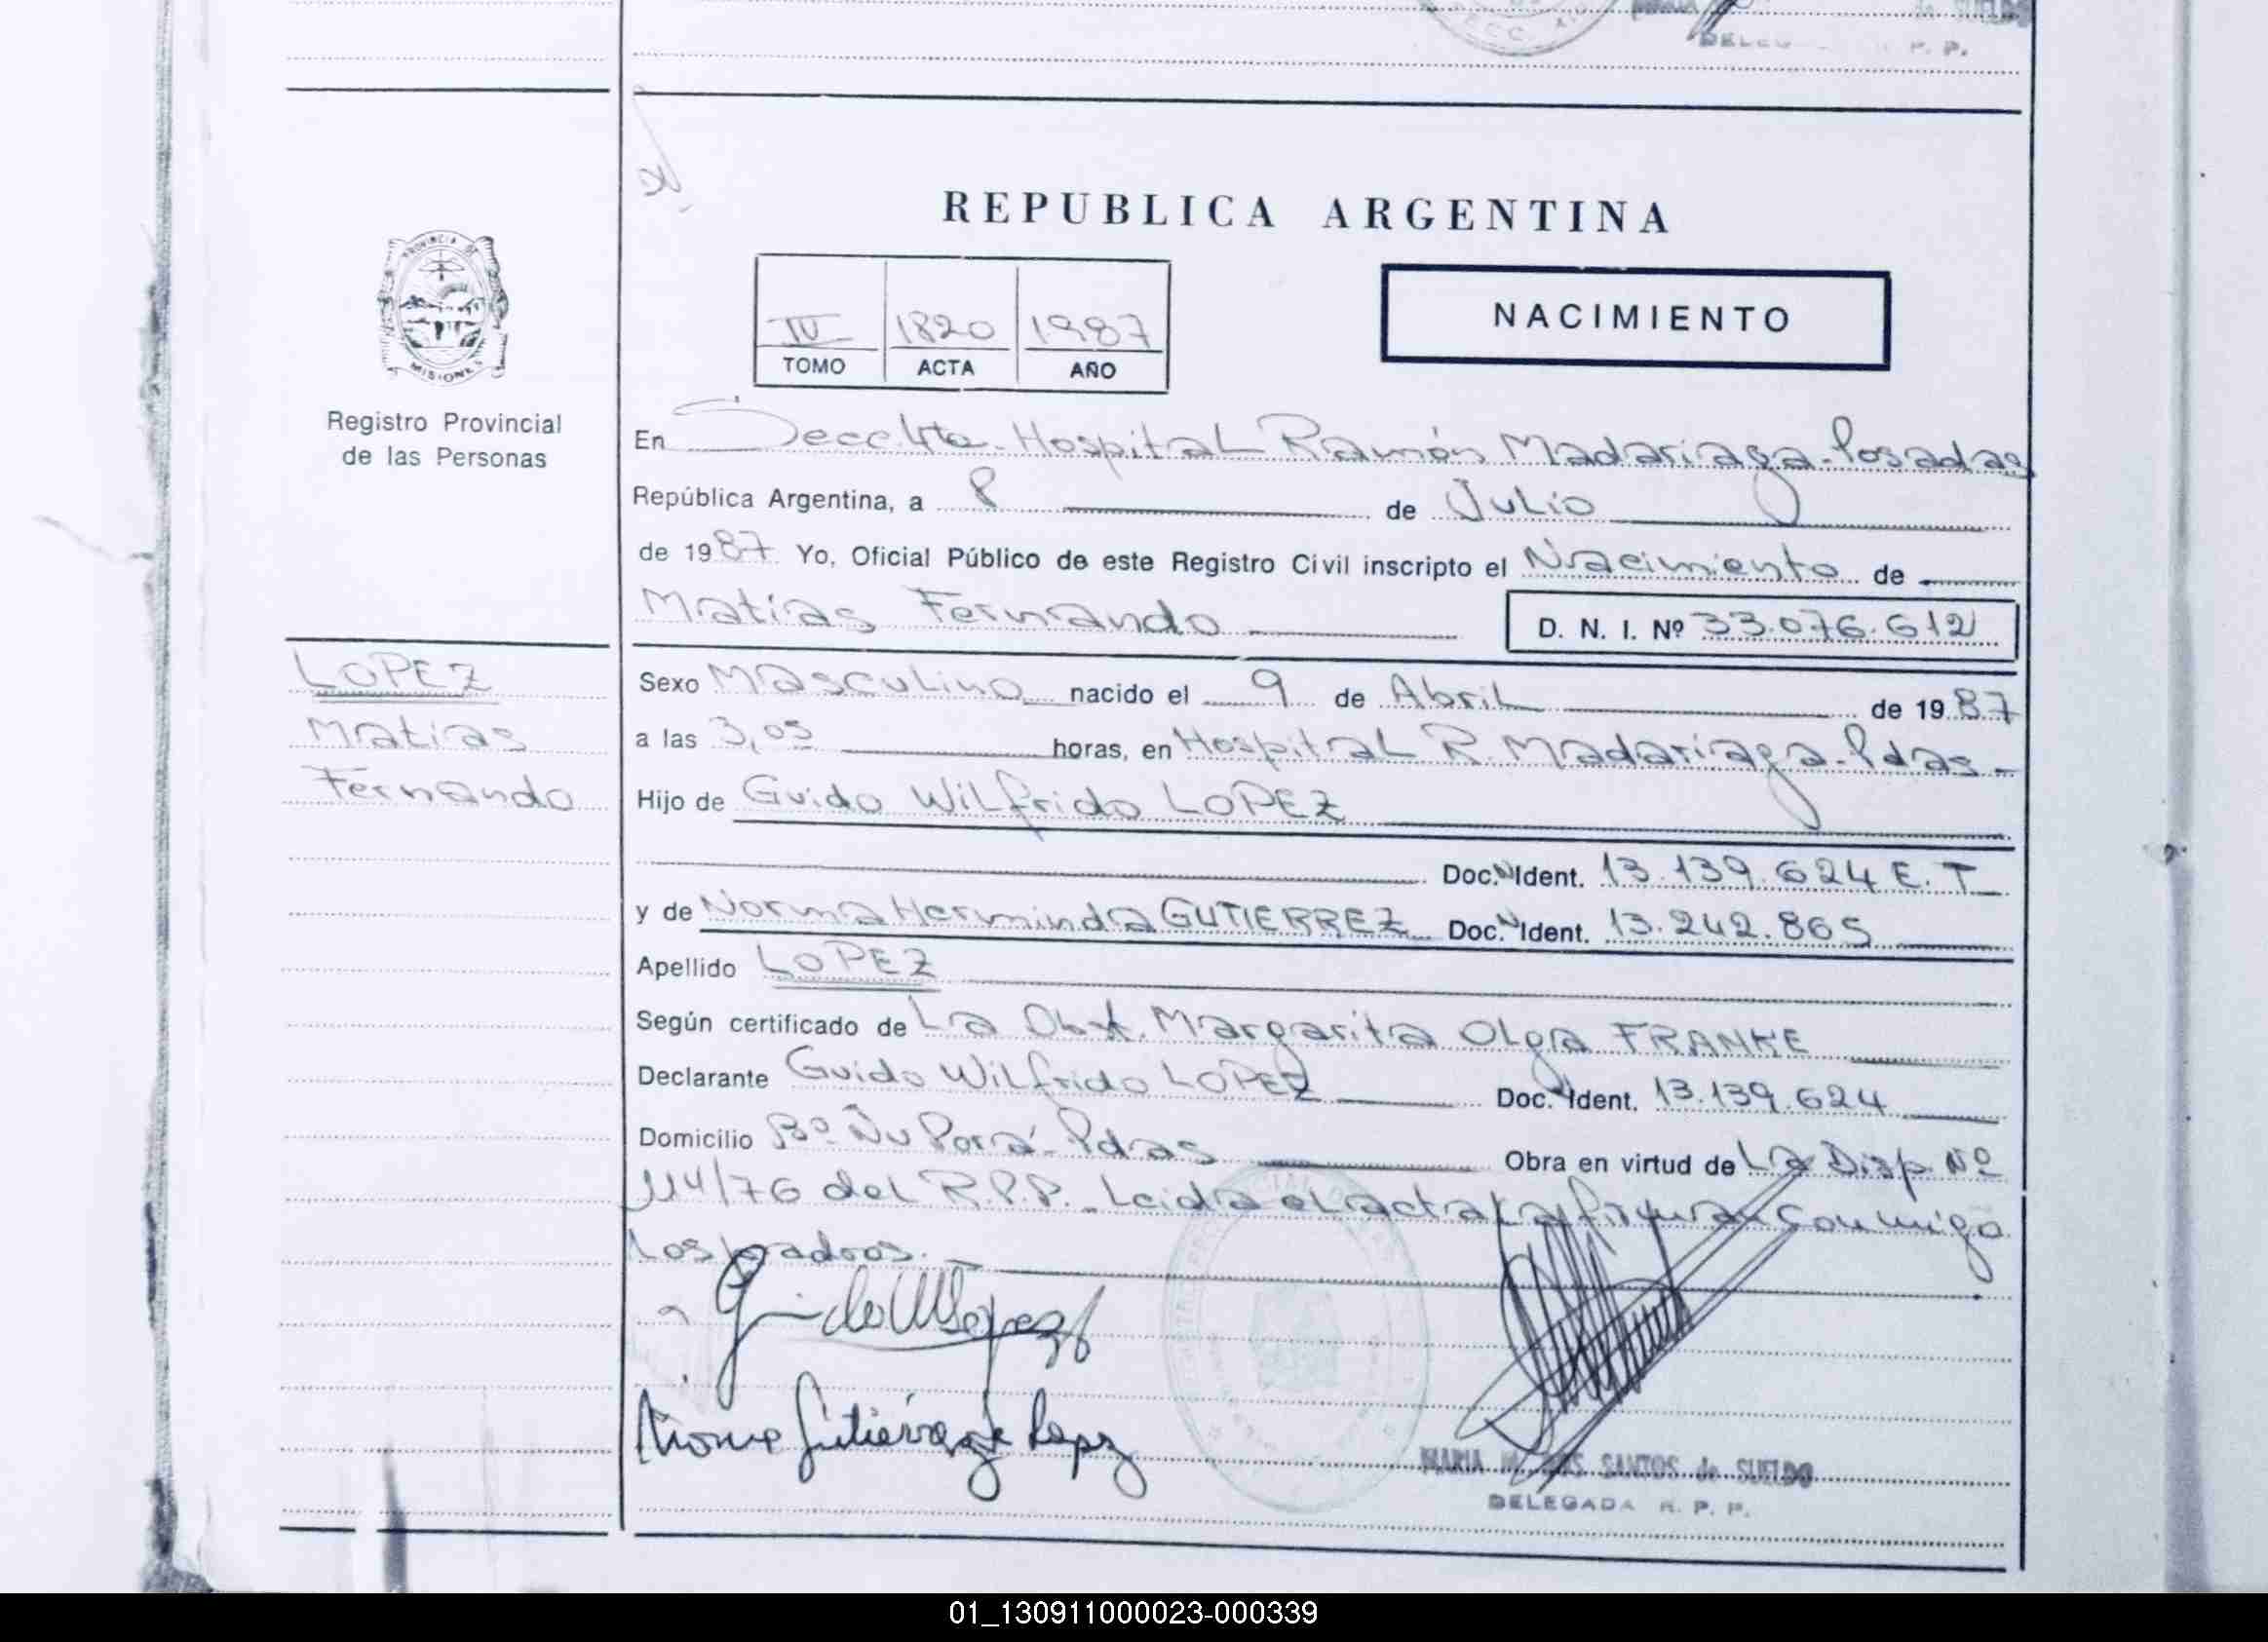 DELEG P. P.
REPUBLICA ARGENTINA
PROVINCIA DE
MISIONES
Registro Provincial
de las Personas
IV 1820 1987
TOMO ACTA AÑO
NACIMIENTO
En Secc. 4ta. Hospital Ramón Madariaga-Posadas
República Argentina, a 8 de Julio
de 1987 Yo, Oficial Público de este Registro Civil inscripto el Nacimiento de
Matías Fernando D. N. I. Nº 33.076.612
LOPEZ
Matías
Fernando
Sexo Masculino nacido el 9 de Abril de 1987
a las 3,05 horas, en Hospital R. Madariaga-Pdas-
Hijo de Guido Wilfrido LOPEZ
Doc. N Ident. 13.139.624 E. T
y de Norma Herminda GUTIERREZ Doc. N Ident. 13.242.865
Apellido LOPEZ
Según certificado de La Obst. Margarita Olga FRANKE
Declarante Guido Wilfrido LOPEZ Doc. N Ident. 13.139.624
Domicilio Bº Ñu Porá- Pdas Obra en virtud de La Disp. Nº
114/76 del R.P.P. Leida el acta la firman conmigo
los padres.
Guido W Lopez
Norma Gutiérrez de Lopez
MARIA SANTOS de SUELDO
DELEGADA R. P. P.
01_130911000023-000339